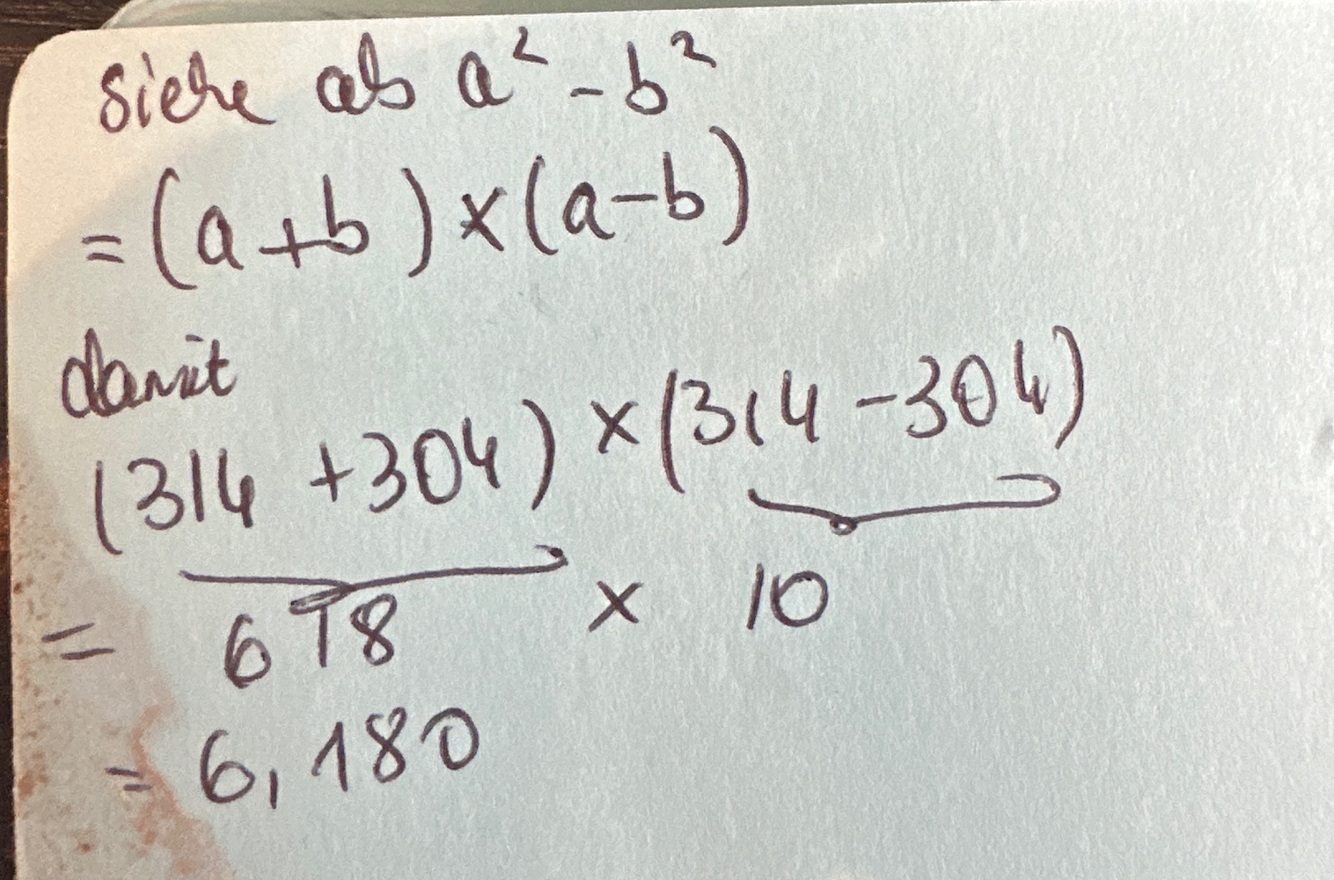 siehe als a² - b²
= (a+b) × (a-b)
damit
(314 +304) × (314 -304)
= 618 × 10
= 6,180